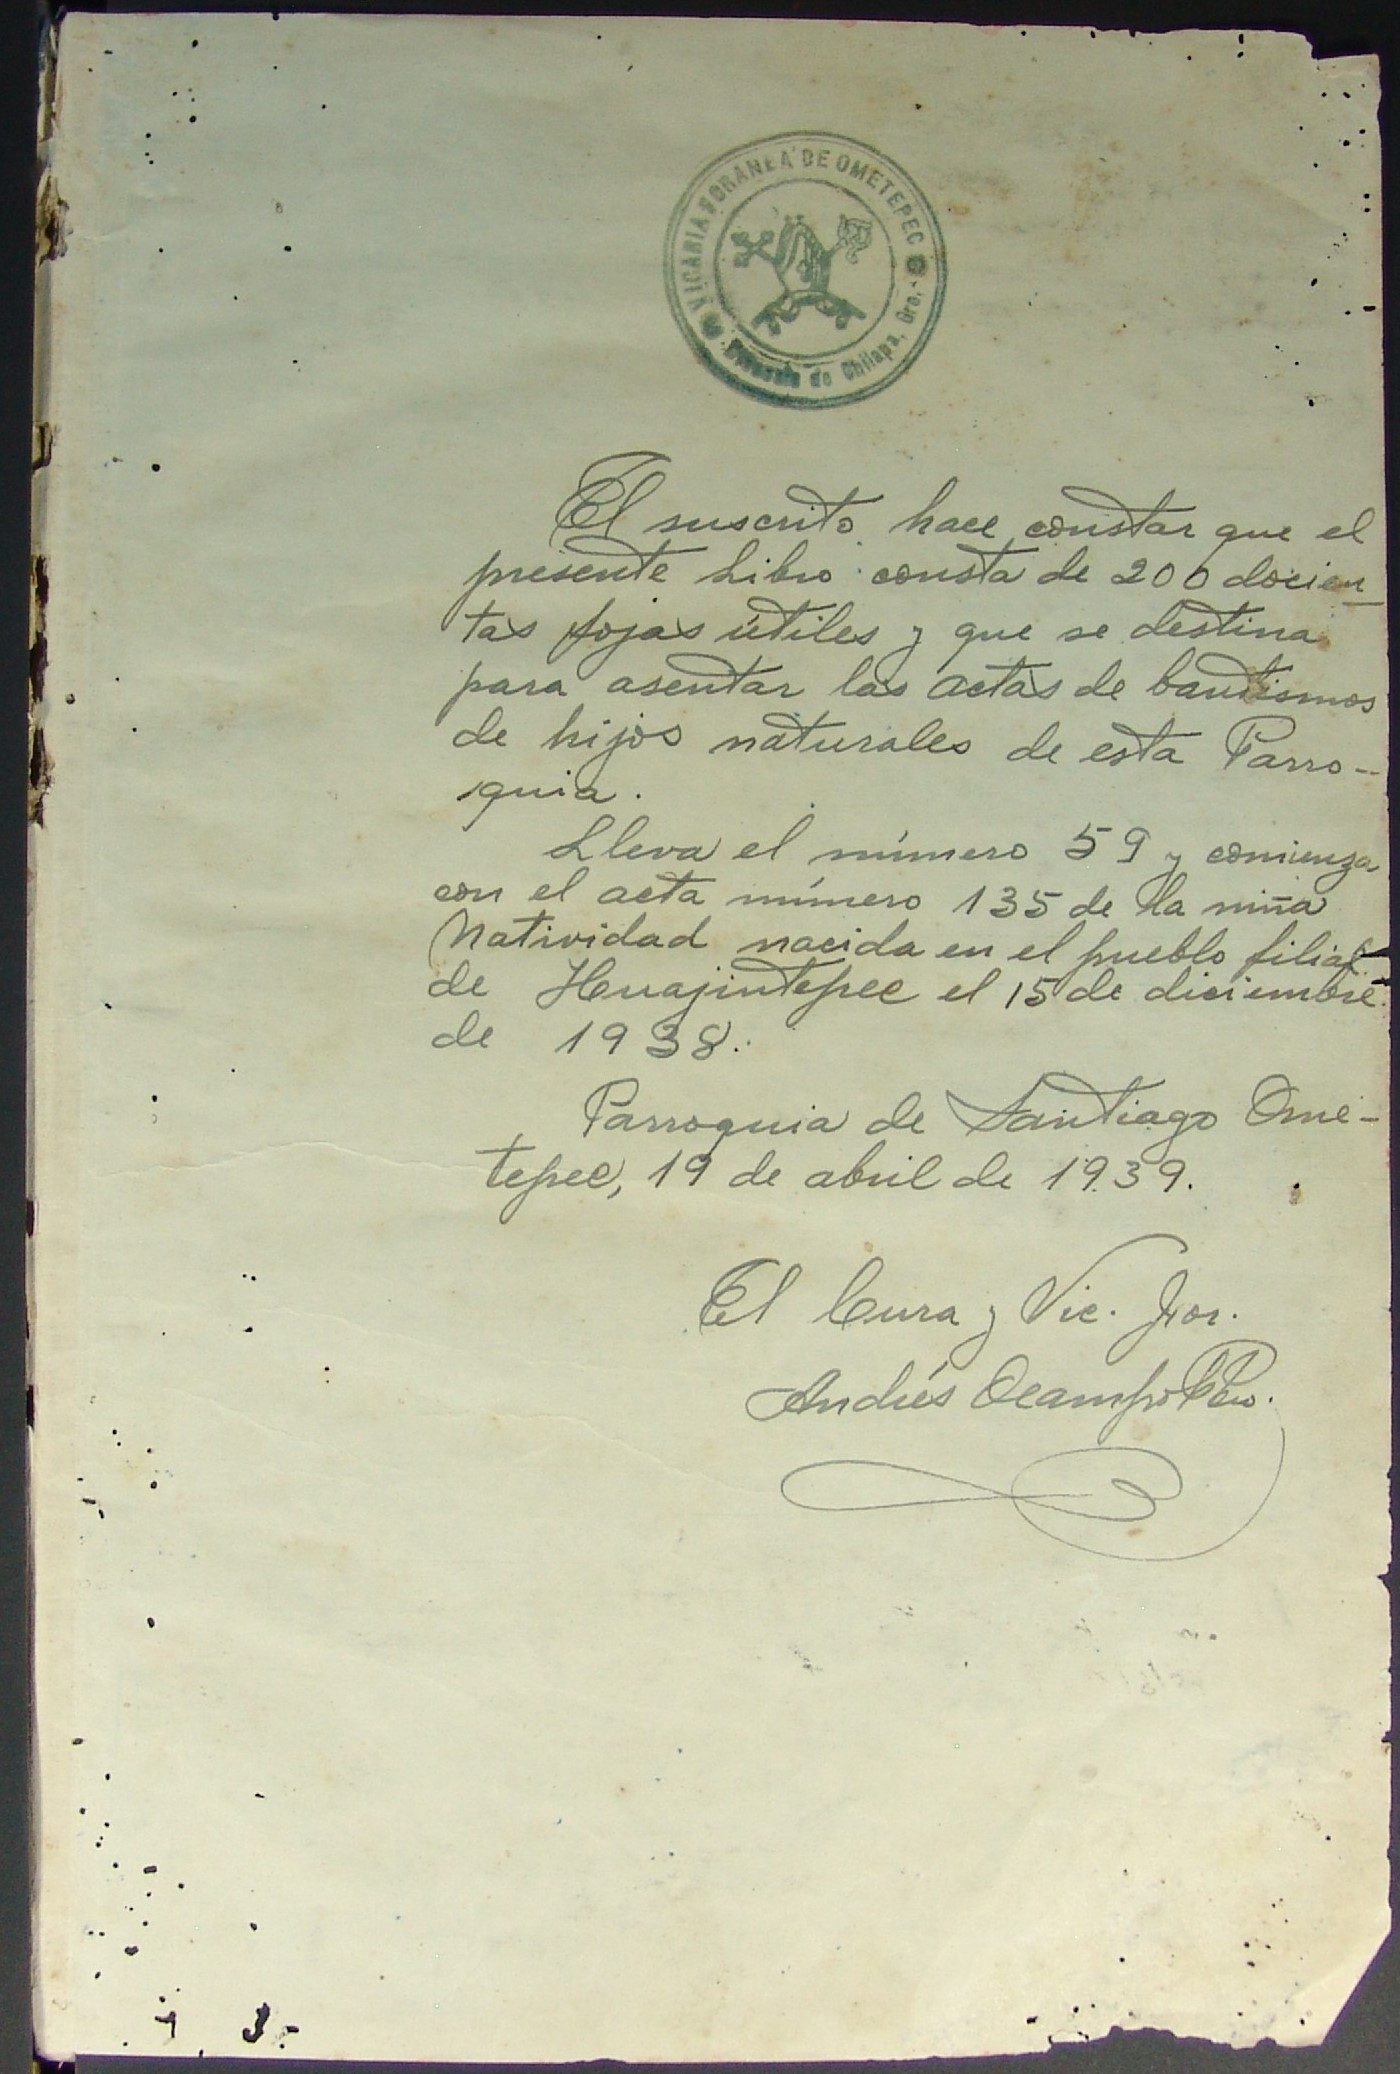 VICARIA FORANEA DE OMETEPEC
Diócesis de Chilapa, Gro.
El suscrito hace constar que el
presente Libro consta de 200 docien_
tas fojas útiles y que se destina
para asentar las actas de bautismos
de hijos naturales de esta Parro-
quia.
Lleva el número 59 y comienza
con el acta número 135 de la niña
Natividad nacida en el pueblo filial
de Huajintepec el 15 de diciembre
de 1938.
Parroquia de Santiago Ome-
tepec, 19 de abril de 1939.
El Cura y Vic. For.
Andrés Ocampo Pbro.